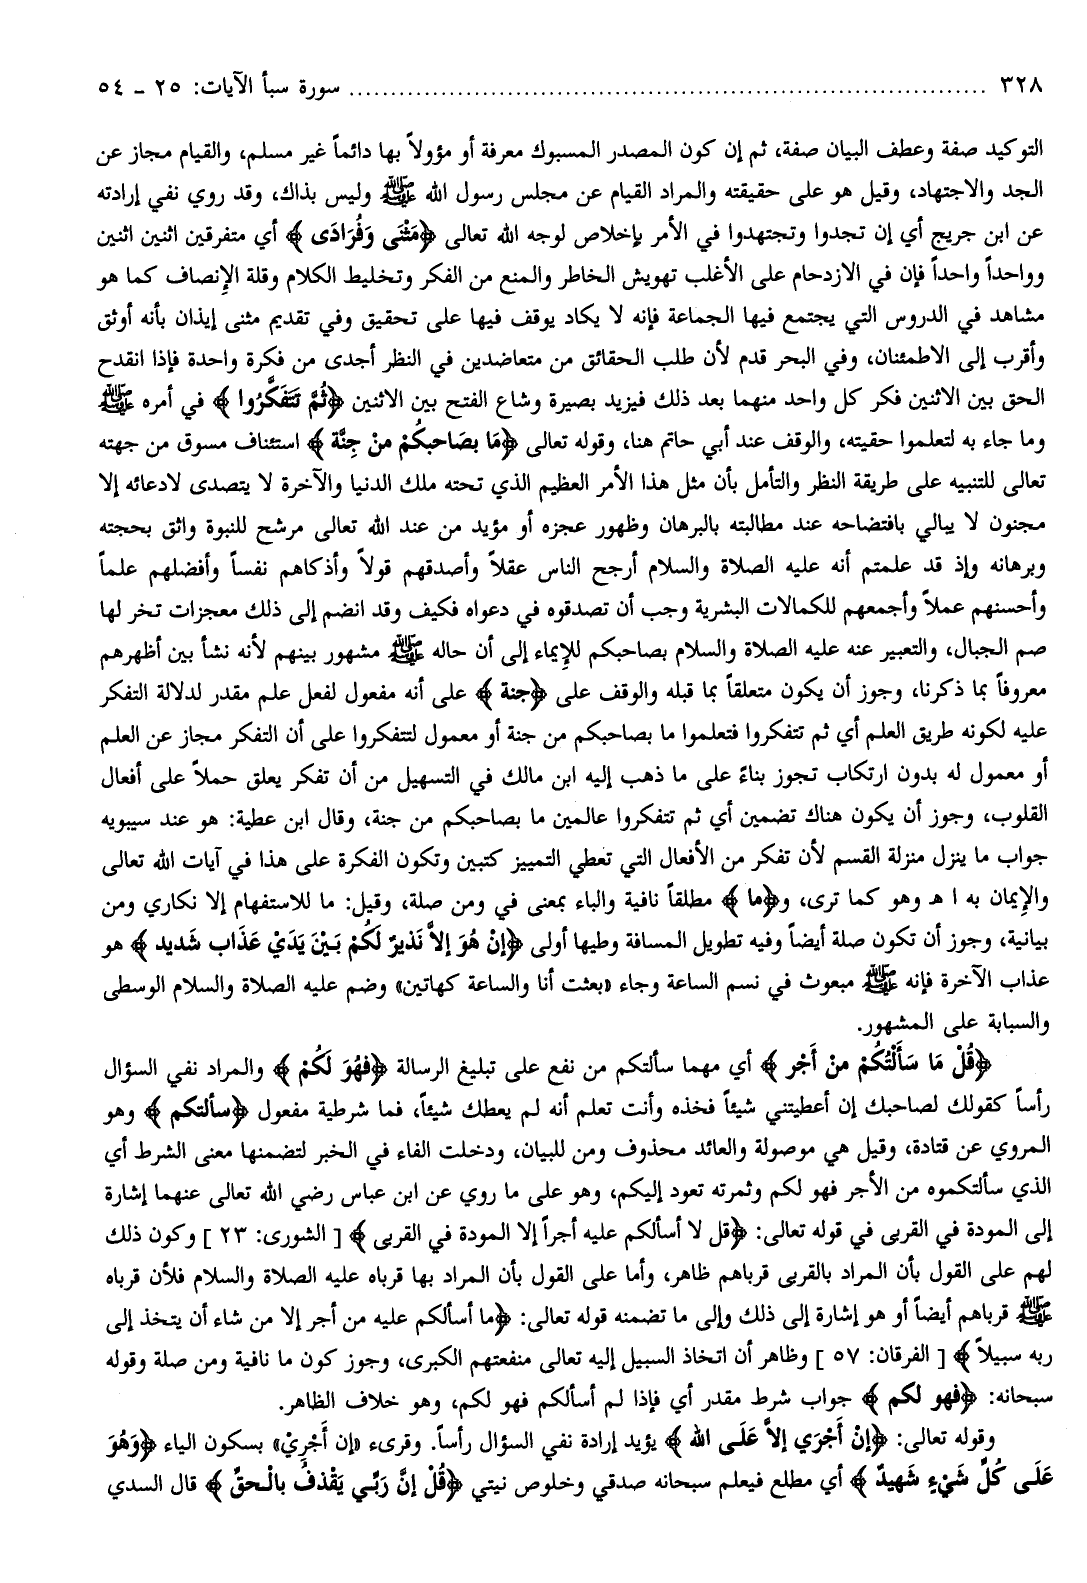 ٣٢٨ ........................................................ سورة سبأ الآيات: ٢٥ - ٥٤
التوكيد صفة وعطف البيان صفة، ثم إن كون المصدر المسبوك معرفة أو مؤولاً بها دائماً غير مسلم، والقيام مجاز عن
الجد والاجتهاد، وقيل هو على حقيقته والمراد القيام عن مجلس رسول الله ﷺ وليس بذاك، وقد روي نفي إرادته
عن ابن جريج أي إن تجدوا وتجتهدوا في الأمر بإخلاص لوجه الله تعالى ﴿مَثْنَى وَفُرَادَى﴾ أي متفرقين اثنين اثنين
وواحداً واحداً فإن في الازدحام على الأغلب تهويش الخاطر والمنع من الفكر وتخليط الكلام وقلة الإِنصاف كما هو
مشاهد في الدروس التي يجتمع فيها الجماعة فإنه لا يكاد يوقف فيها على تحقيق وفي تقديم مثنى إيذان بأنه أوثق
وأقرب إلى الاطمئنان، وفي البحر قدم لأن طلب الحقائق من متعاضدين في النظر أجدى من فكرة واحدة فإذا انقدح
الحق بين الاثنين فكر كل واحد منهما بعد ذلك فيزيد بصيرة وشاع الفتح بين الاثنين ﴿ثُمَّ تَتَفَكَّرُوا﴾ في أمره ﷺ
وما جاء به لتعلموا حقيته، والوقف عند أبي حاتم هنا، وقوله تعالى ﴿مَا بصَاحبكُمْ منْ جِنَّة﴾ استئناف مسوق من جهته
تعالى للتنبيه على طريقة النظر والتأمل بأن مثل هذا الأمر العظيم الذي تحته ملك الدنيا والآخرة لا يتصدى لادعائه إلا
مجنون لا يبالي بافتضاحه عند مطالبته بالبرهان وظهور عجزه أو مؤيد من عند الله تعالى مرشح للنبوة واثق بحجته
وبرهانه وإذ قد علمتم أنه عليه الصلاة والسلام أرجح الناس عقلاً وأصدقهم قولاً وأذكاهم نفساً وأفضلهم علماً
وأحسنهم عملاً وأجمعهم للكمالات البشرية وجب أن تصدقوه في دعواه فكيف وقد انضم إلى ذلك معجزات تخر لها
صم الجبال، والتعبير عنه عليه الصلاة والسلام بصاحبكم للإِيماء إلى أن حاله ﷺ مشهور بينهم لأنه نشأ بين أظهرهم
معروفاً بما ذكرنا، وجوز أن يكون متعلقاً بما قبله والوقف على ﴿جنة﴾ على أنه مفعول لفعل علم مقدر لدلالة التفكر
عليه لكونه طريق العلم أي ثم تتفكروا فتعلموا ما بصاحبكم من جنة أو معمول لتتفكروا على أن التفكر مجاز عن العلم
أو معمول له بدون ارتكاب تجوز بناءً على ما ذهب إليه ابن مالك في التسهيل من أن تفكر يعلق حملاً على أفعال
القلوب، وجوز أن يكون هناك تضمين أي ثم تتفكروا عالمين ما بصاحبكم من جنة، وقال ابن عطية: هو عند سيبويه
جواب ما ينزل منزلة القسم لأن تفكر من الأفعال التي تعطي التمييز كتبين وتكون الفكرة على هذا في آيات الله تعالى
والإِيمان به ا هـ وهو كما ترى، و﴿ما﴾ مطلقاً نافية والباء بمعنى في ومن صلة، وقيل: ما للاستفهام إلا نكاري ومن
بيانية، وجوز أن تكون صلة أيضاً وفيه تطويل المسافة وطيها أولى ﴿إنْ هُوَ إلاَّ نَذيرٌ لَكُمْ بَيْنَ يَدَيْ عَذَاب شَديد﴾ هو
عذاب الآخرة فإنه ﷺ مبعوث في نسم الساعة وجاء «بعثت أنا والساعة كهاتين» وضم عليه الصلاة والسلام الوسطى
والسبابة على المشهور.
﴿قُلْ مَا سَأَلْتُكُمْ منْ أَجْر﴾ أي مهما سألتكم من نفع على تبليغ الرسالة ﴿فهُوَ لَكُمْ﴾ والمراد نفي السؤال
رأساً كقولك لصاحبك إن أعطيتني شيئاً فخذه وأنت تعلم أنه لم يعطك شيئاً، فما شرطية مفعول ﴿سألتكم﴾ وهو
المروي عن قتادة، وقيل هي موصولة والعائد محذوف ومن للبيان، ودخلت الفاء في الخبر لتضمنها معنى الشرط أي
الذي سألتكموه من الأجر فهو لكم وثمرته تعود إليكم، وهو على ما روي عن ابن عباس رضي الله تعالى عنهما إشارة
إلى المودة في القربى في قوله تعالى: ﴿قل لا أسألكم عليه أجراً إلا المودة في القربى﴾ [ الشورى: ٢٣ ] وكون ذلك
لهم على القول بأن المراد بالقربى قرباهم ظاهر، وأما على القول بأن المراد بها قرباه عليه الصلاة والسلام فلأن قرباه
ﷺ قرباهم أيضاً أو هو إشارة إلى ذلك وإلى ما تضمنه قوله تعالى: ﴿ما أسألكم عليه من أجر إلا من شاء أن يتخذ إلى
ربه سبيلاً﴾ [ الفرقان: ٥٧ ] وظاهر أن اتخاذ السبيل إليه تعالى منفعتهم الكبرى، وجوز كون ما نافية ومن صلة وقوله
سبحانه: ﴿فهو لكم﴾ جواب شرط مقدر أي فإذا لم أسألكم فهو لكم، وهو خلاف الظاهر.
وقوله تعالى: ﴿إنْ أَجْرَي إلاَّ عَلَى الله﴾ يؤيد إرادة نفي السؤال رأساً. وقرىء «إن أَجْرِيْ» بسكون الياء ﴿وَهُوَ
عَلَى كُلِّ شَيْءٍ شَهيدٌ﴾ أي مطلع فيعلم سبحانه صدقي وخلوص نيتي ﴿قُلْ إنَّ رَبِّي يَقْذفُ بالْحقِّ﴾ قال السدي